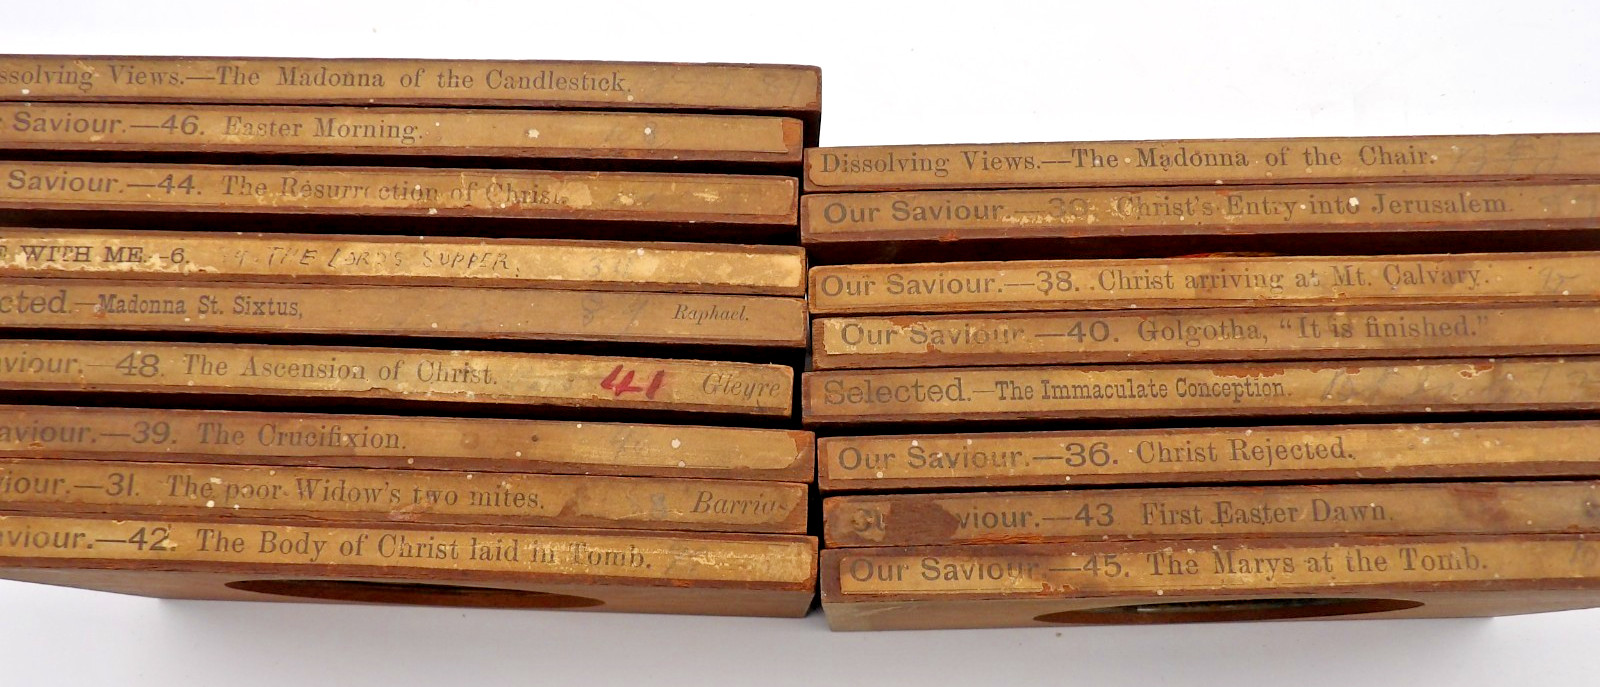 ssolving Views.—The Madonna of the Candlestick.
Saviour.—46. Easter Morning.
Saviour.—44. The Resurrection of Christ.
WITH ME.-6. THE LORDS SUPPER.
cted.—Madonna St. Sixtus, Raphael.
viour.—48. The Ascension of Christ. 41 Gleyre
aviour.—39. The Crucifixion.
iour.—31. The poor Widow's two mites. Barrias
viour.—42. The Body of Christ laid in Tomb.
Dissolving Views.—The Madonna of the Chair.
Our Saviour. Christ's Entry into Jerusalem.
Our Saviour.—38. Christ arriving at Mt. Calvary.
Our Saviour.—40. Golgotha, "It is finished."
Selected.—The Immaculate Conception.
Our Saviour.—36. Christ Rejected.
viour.—43 First Easter Dawn.
Our Saviour.—45. The Marys at the Tomb.